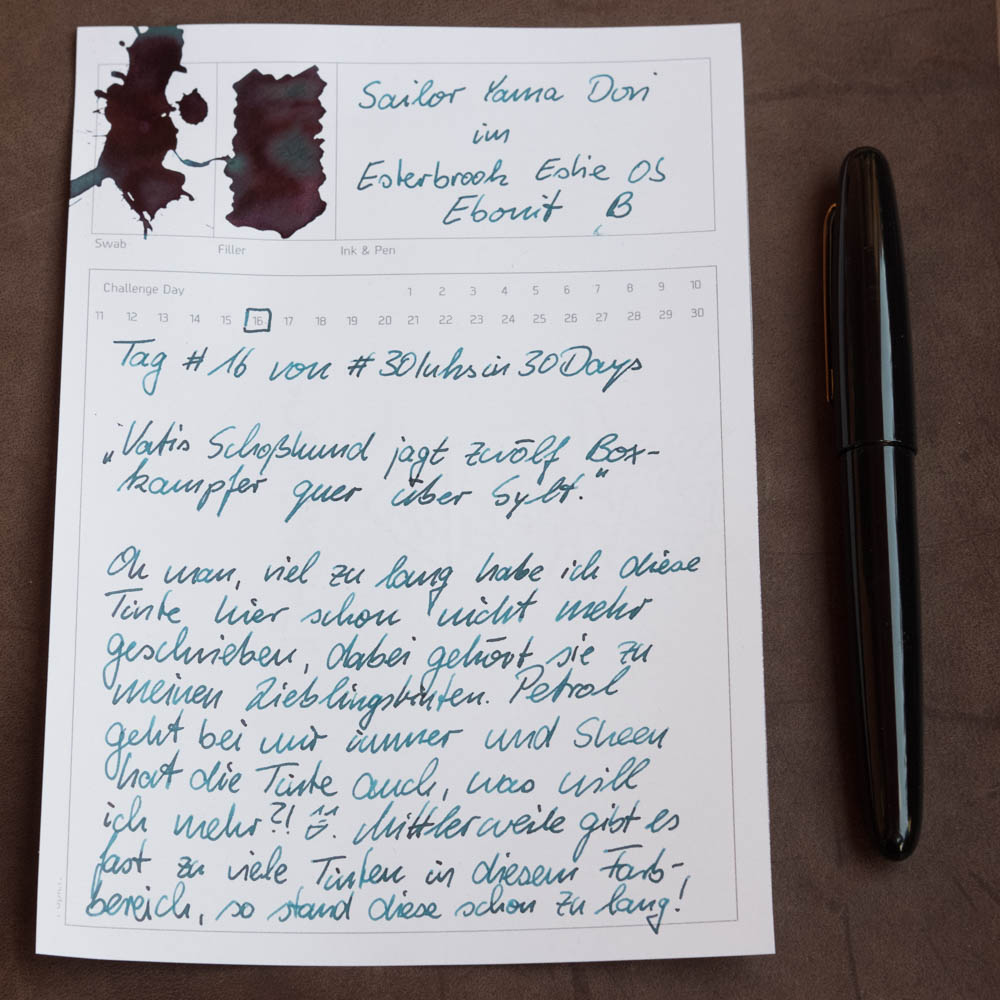 Sailor Yama Dori
im
Esterbrook Estie OS
Ebonit B
Swab
Filler
Ink & Pen
Challenge Day 1 2 3 4 5 6 7 8 9 10
11 12 13 14 15 16 17 18 19 20 21 22 23 24 25 26 27 28 29 30
Tag #16 von #30Inksin30Days
„Vatis Schoßhund jagt zwölf Box-
kampfer quer über Sylt."
Oh man, viel zu lang habe ich diese
Tinte hier schon nicht mehr
geschrieben, dabei gehört sie zu
meinen Lieblingstinten. Petrol
geht bei mir immer und Sheen
hat die Tinte auch, was will
ich mehr?! ^^. Mittlerweile gibt es
fast zu viele Tinten in diesem Farb-
bereich, so stand diese schon zu lang!